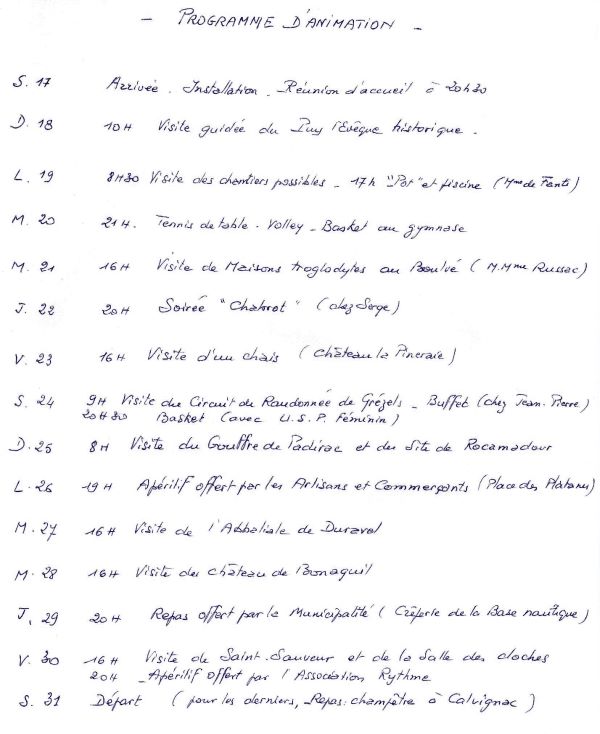 - PROGRAMME D'ANIMATION -
S. 17 Arrivée. Installation. Réunion d'accueil à 20h30
D. 18 10H Visite guidée du Puy l'Evêque historique.
L. 19 8H30 Visite des chantiers possibles - 17h "Pot" et piscine (Mme de Fanti)
M. 20 21H. Tennis de table - Volley - Basket au gymnase
M. 21 16H Visite de Maisons troglodytes au Boulvé (M. Mme Russac)
J. 22 20H Soirée "Chabrot" (chez Serge)
V. 23 16H Visite d'un chais (Château la Pineraie)
S. 24 9H Visite du Circuit de Randonnée de Grézels - Buffet (chez Jean-Pierre)
20H30 Basket (avec U.S.P. Féminin)
D. 25 8H Visite du Gouffre de Padirac et du Site de Rocamadour
L. 26 19H Apéritif offert par les Artisans et Commerçants (Place des Platanes)
M. 27 16H Visite de l'Abbatiale de Duravel
M. 28 16H Visite du château de Bonaguil
J. 29 20H Repas offert par la Municipalité (Crêperie de la Base nautique)
V. 30 16H Visite de Saint-Sauveur et de la Salle des cloches
20H - Apéritif offert par l'Association Rythme
S. 31 Départ (pour les derniers, Repas champêtre à Calvignac)